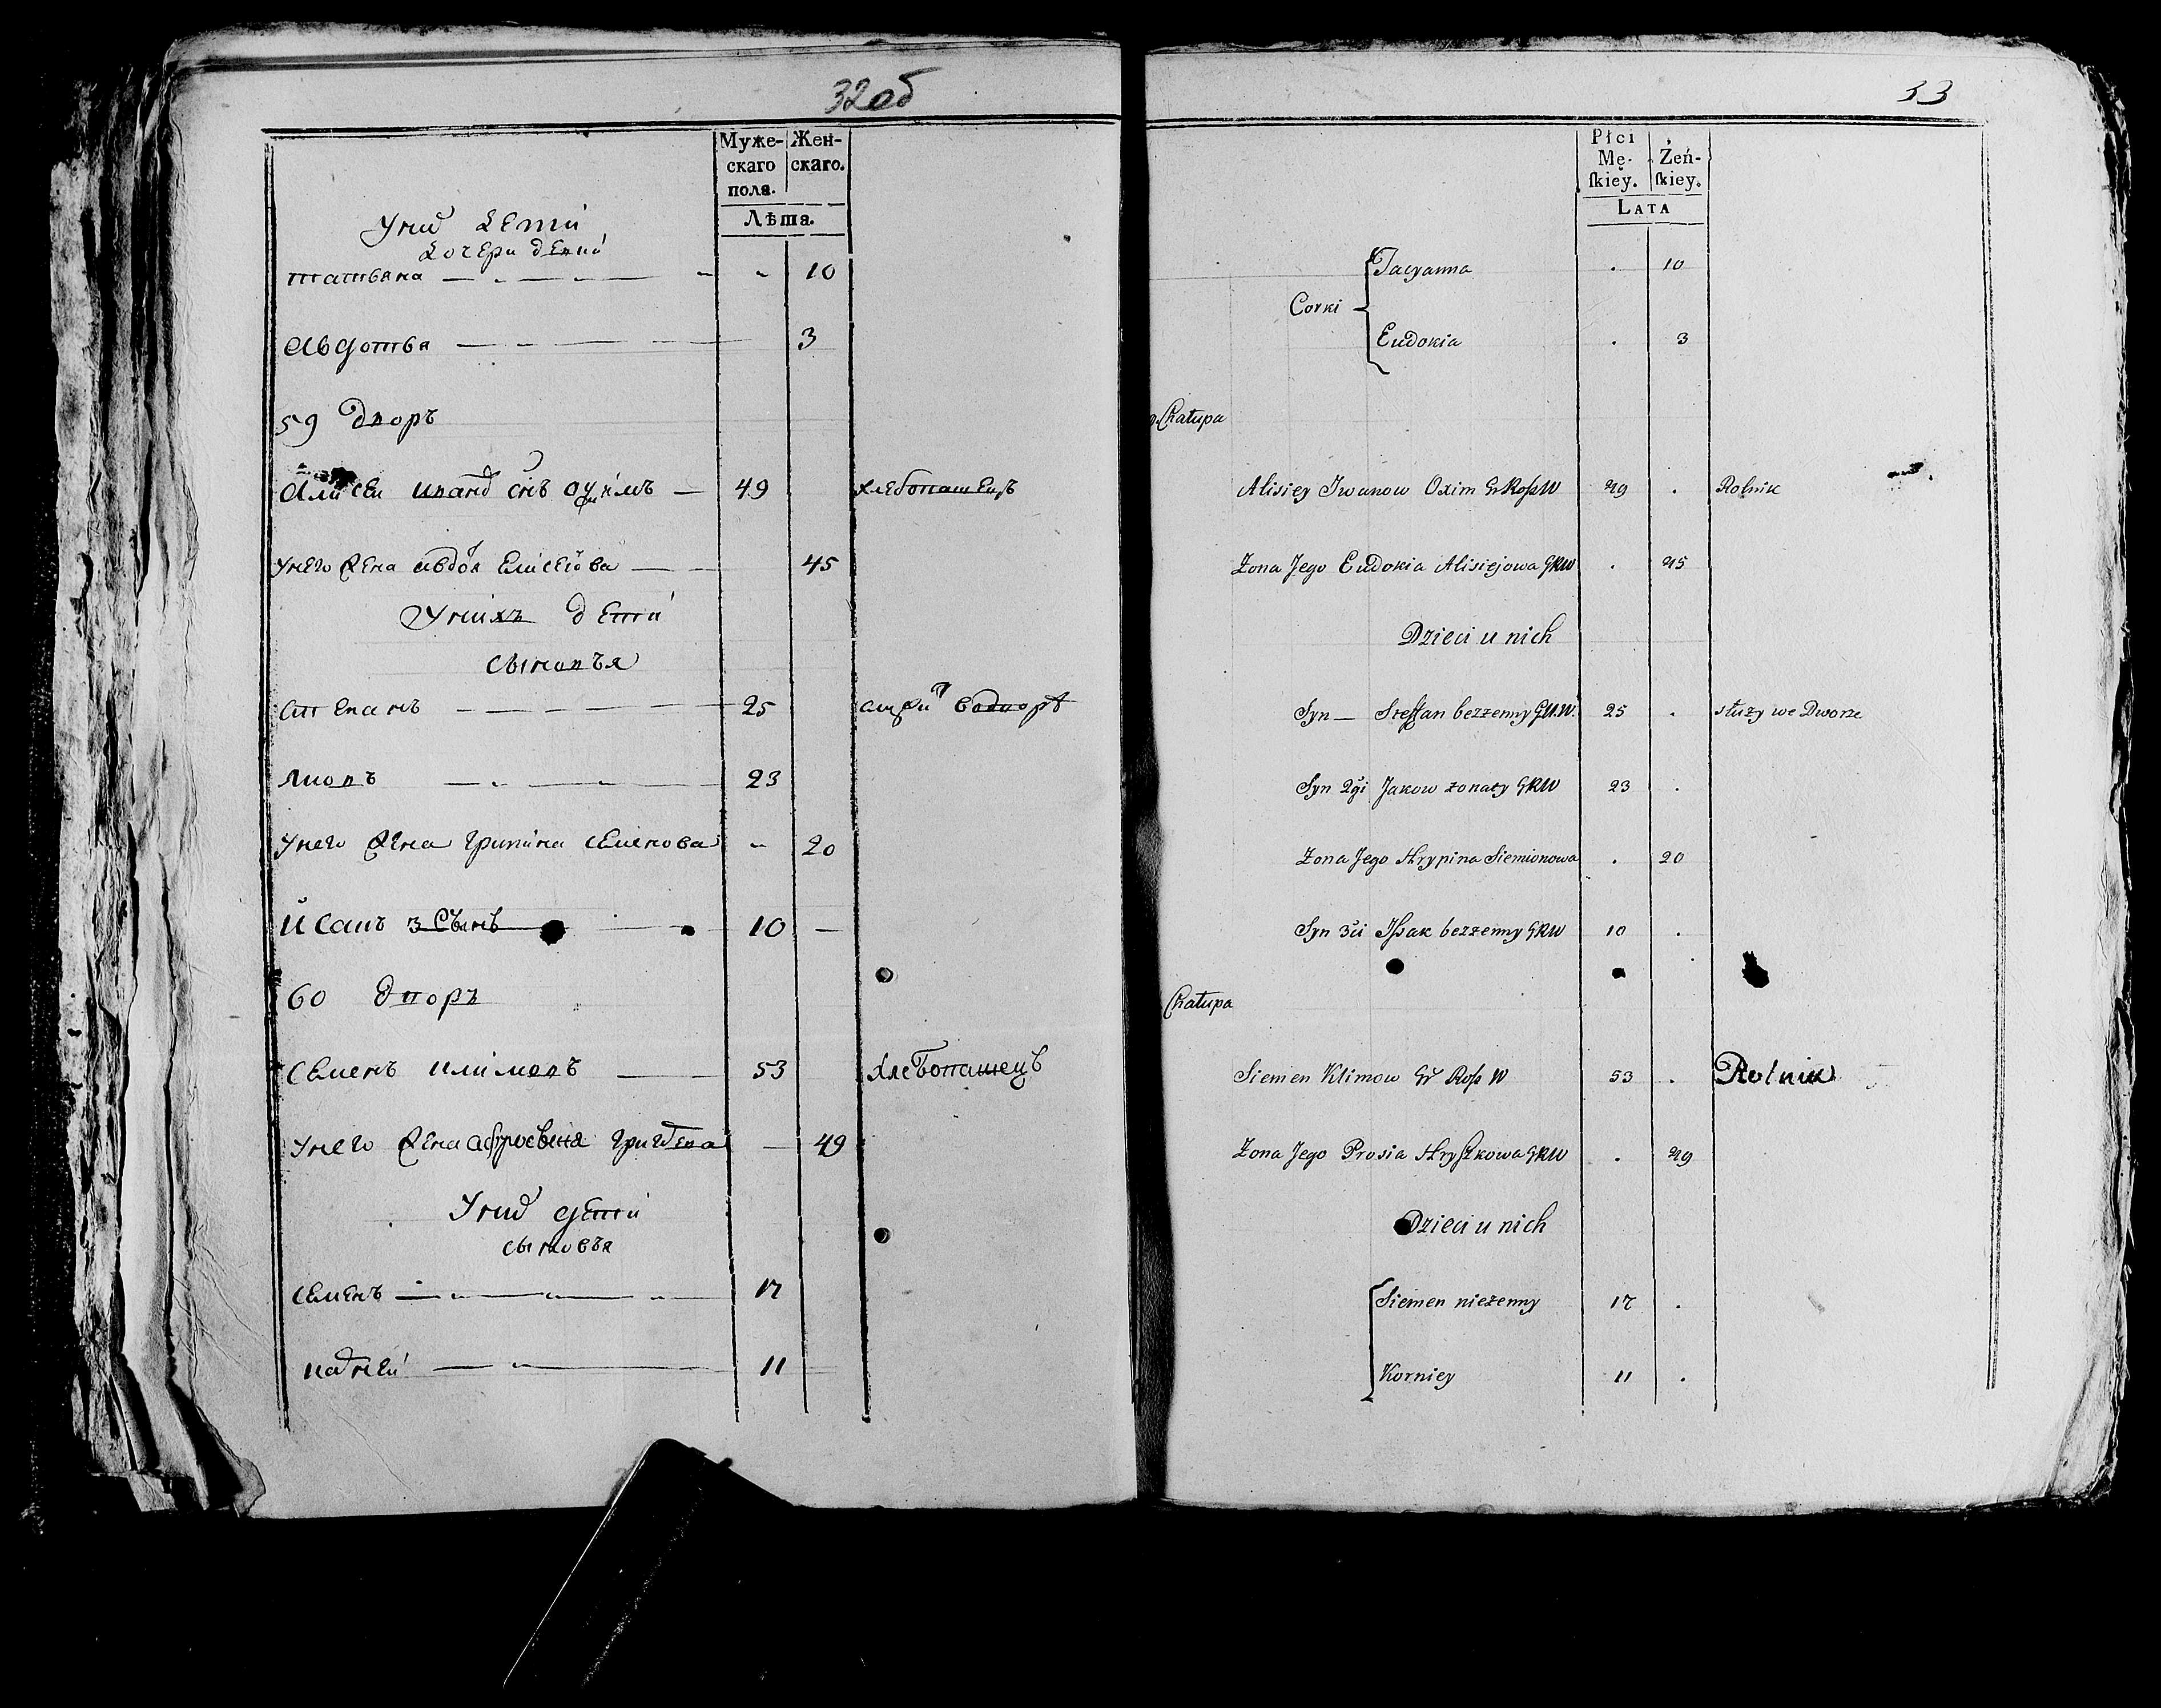 32об
Муже-
скаго
пола.
Жен-
скаго.
Лѣта.
Унихъ дети
дочери девки
татьяна 10
Авдотья 3
59 дворъ
Алисеи иванов снъ 49 хлебопашецъ
Унего жена авдотя Елисеева 45
Унихъ дети
сыновья
степанъ 25
Яковъ 23
Унего жена грипина семенова 20
исакъ 3 сынъ 10
60 дворъ
семенъ климовъ 53 хлебопашецъ
Унего жена 49
Унихъ дети
сыновья
семенъ 17
корнеи 11
33
Płci
Mę-
ſkiey.
Żeń-
ſkiey.
LATA
Corki
Tacyanna . 10
Eudokia . 3
Chałupa
Alisiey Jwanow Oxim Gr Roſs W 49 . Rolnik
Zona Jego Eudokia Alisiejowa GRW . 45
Dzieci u nich
Syn — Steffan bezzenny 25 . służy we Dworze
Syn 2gi Jakow zonaty GRW 23 .
Zona Jego Hrypina Siemionowa . 20
Syn 3ci Jſsak bezzenny GRW 10 .
Chałupa
Siemen Klimow Gr Roſs W 53 . Rolnik
Zona Jego Prosia Hryſzkowa GRW . 49
Dzieci u nich
Siemen niezenny 17 .
Korniey 11 .